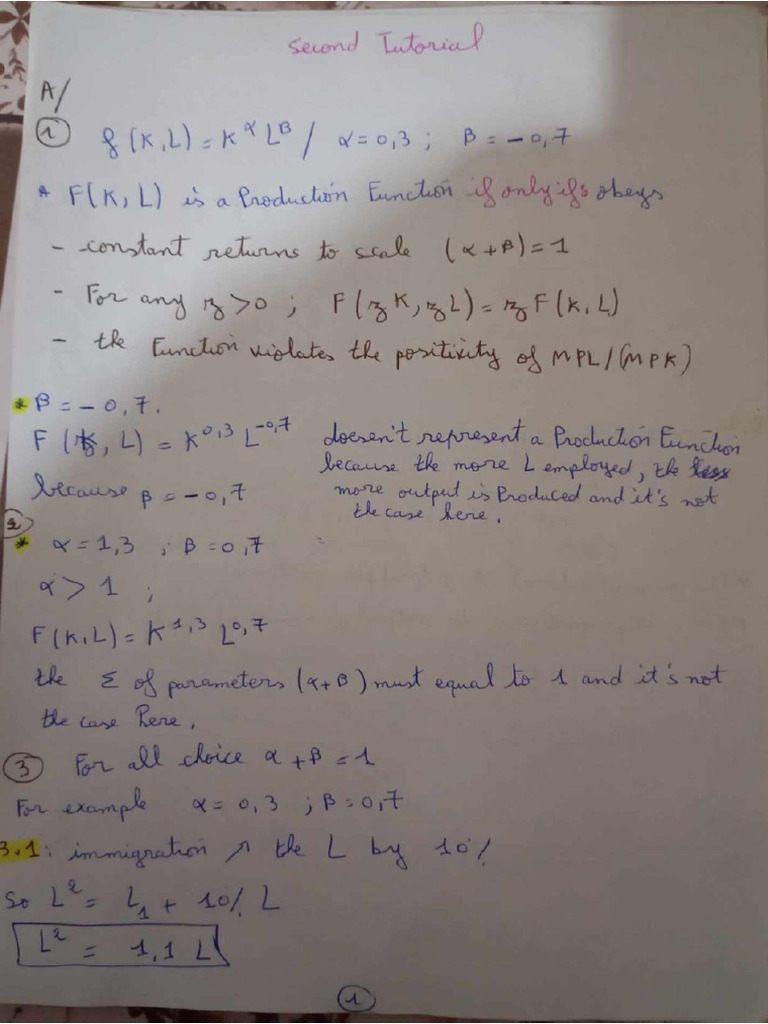 Second Tutorial
A/
1 f(K,L) = K^α L^β / α = 0,3 ; β = -0,7
* F(K, L) is a Production Function if only if s obeys
- constant returns to scale (α + β) = 1
- For any z > 0 ; F(zK, zL) = z F(K, L)
- the Function violates the positivity of MPL/(MPK)
* β = -0,7.
F(K, L) = K^0,3 L^-0,7 doesen't represent a Production Function
because the more L employed, the less
because β = -0,7 more output is Produced and it's not
the case here.
2
* α = 1,3 ; β = 0,7
α > 1 ;
F(K,L) = K^1,3 L^0,7
the Σ of parameters (α + β) must equal to 1 and it's not
the case here.
3 For all choice α + β = 1
For example α = 0,3 ; β = 0,7
3.1: immigration ↗ the L by 10%
So L^2 = L_1 + 10% L
L^2 = 1,1 L
1